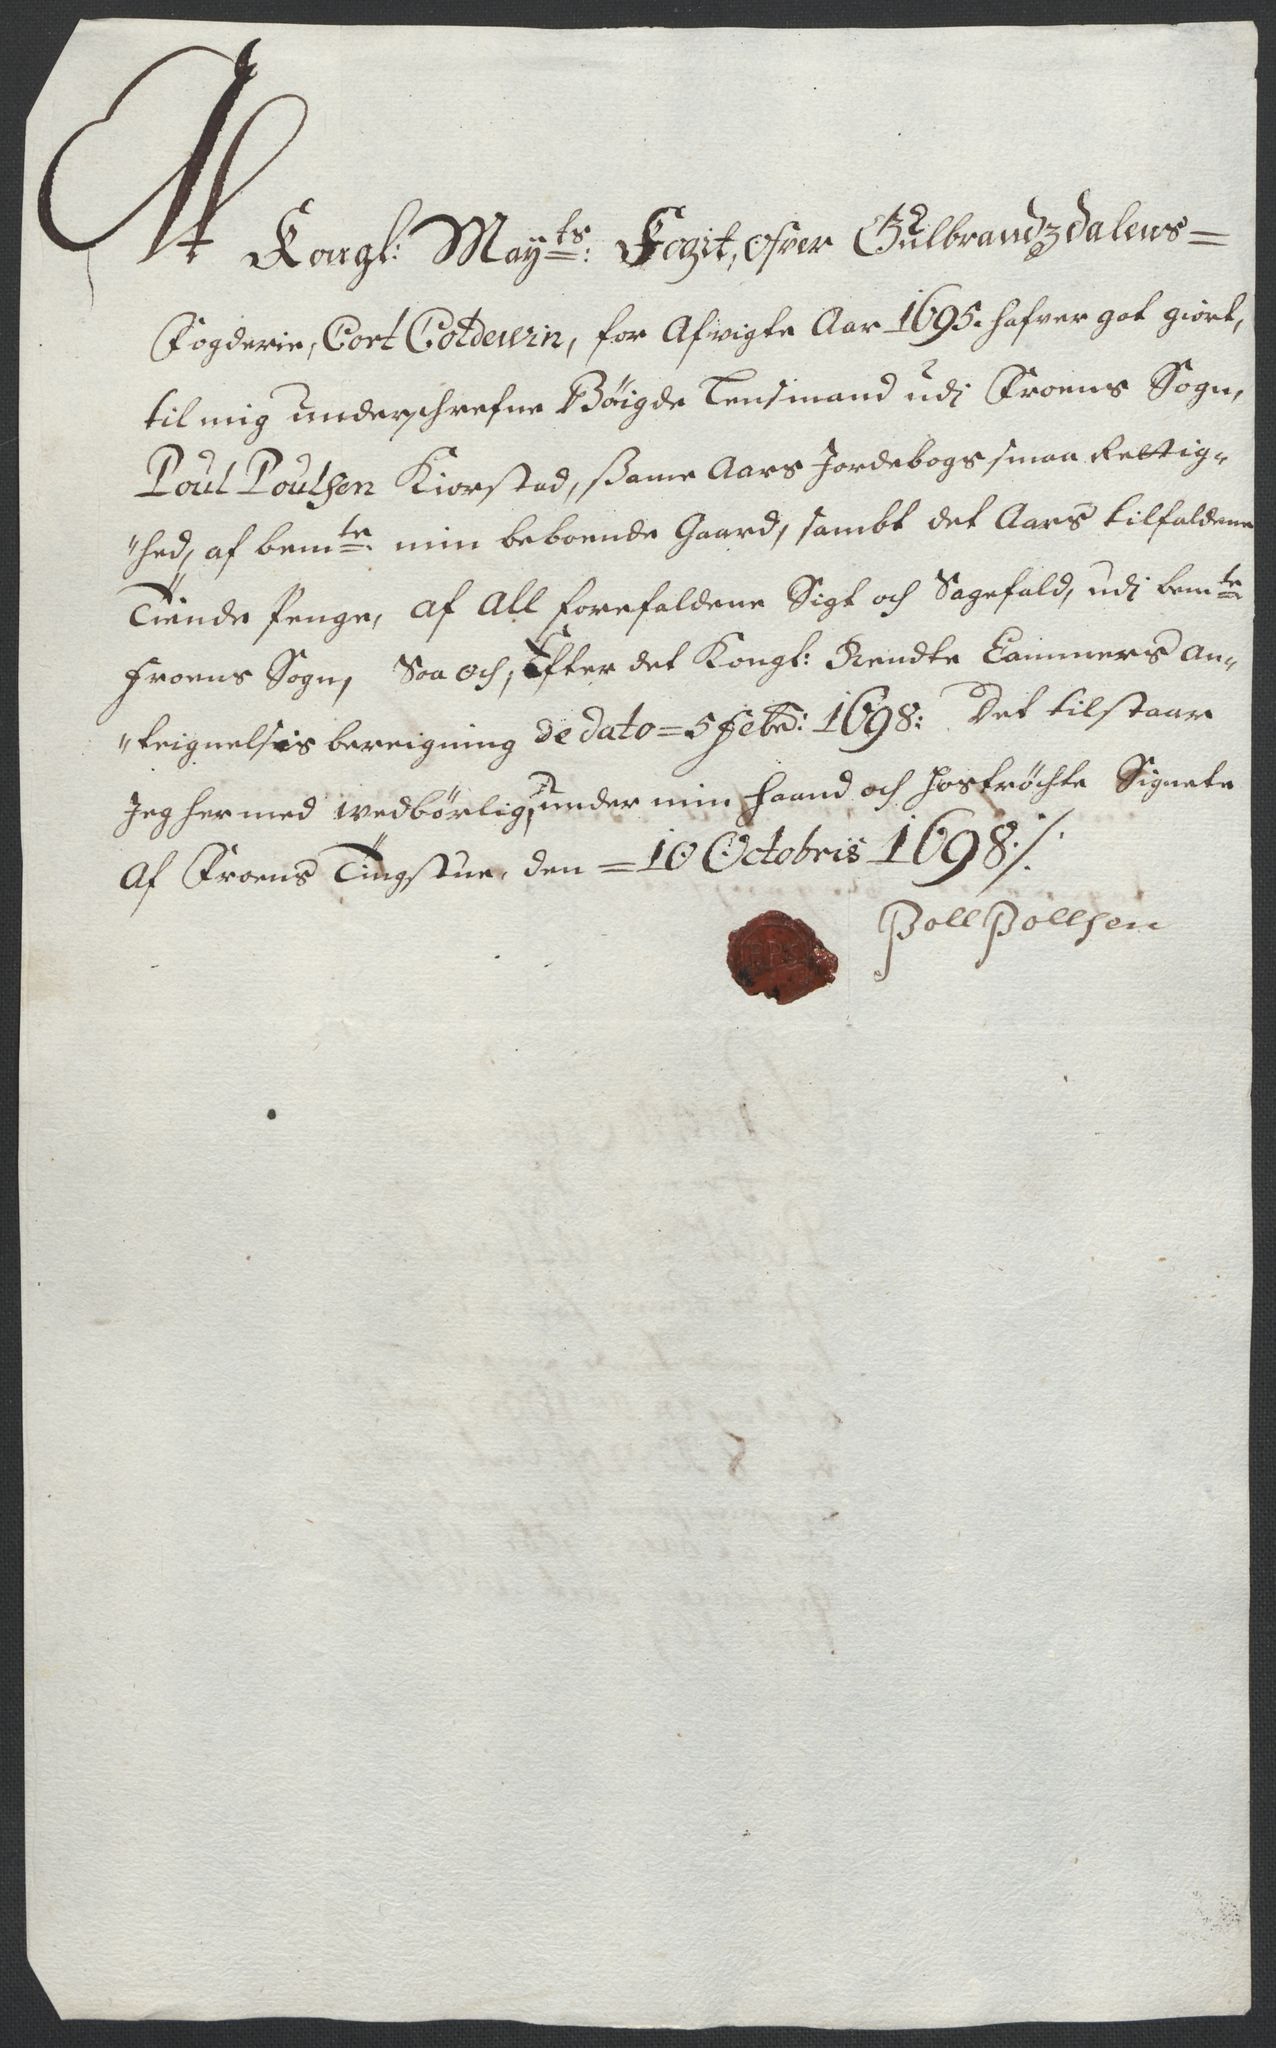 At
Kongl: Mayts: Fogit, ofver Gulbrandzdalens=
Fogderie, Cort Coldewin, for Afvigte Aar 1695. hafver got giort,
til mig underschrefne Böigde Lensmand udj Froens Sogn,
Poul Poulsen Kiorstad, ssame Aars Jordebogs smaa Rettig-
"hed, af bemte min beboende Gaard, sambt det Aars tilfaldene
Tiende Penge, af all forefaldene Sigt och Sagefald, udj bemte
Froens Sogn, Saa och, Efter det Kongl: Rendte Cammers An-
"teignelsis bereigning de dato = 5 Febr: 1698: Det tilstaar
Jeg hermed wedbörlig, under min Haand och hoströchte Signete
Af Froens Tingstue, den = 10 Octobris 1698 ./.
Poll Pollsen